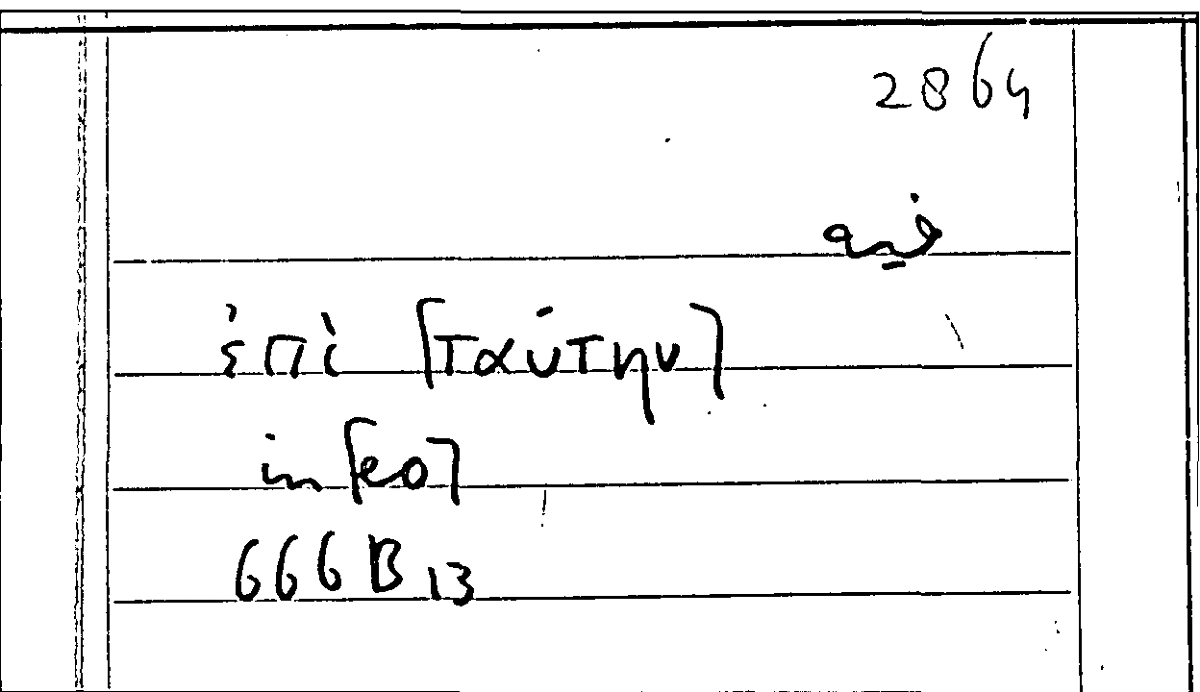 2864
فيه
ἐπὶ [ταύτην]
in [eo]
666 B 13